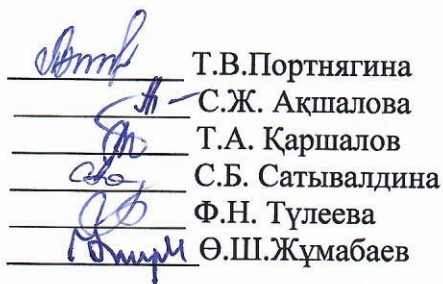 Т.В.Портнягина
С.Ж. Ақшалова
Т.А. Қаршалов
С.Б. Сатывалдина
Ф.Н. Түлеева
Ө.Ш.Жұмабаев